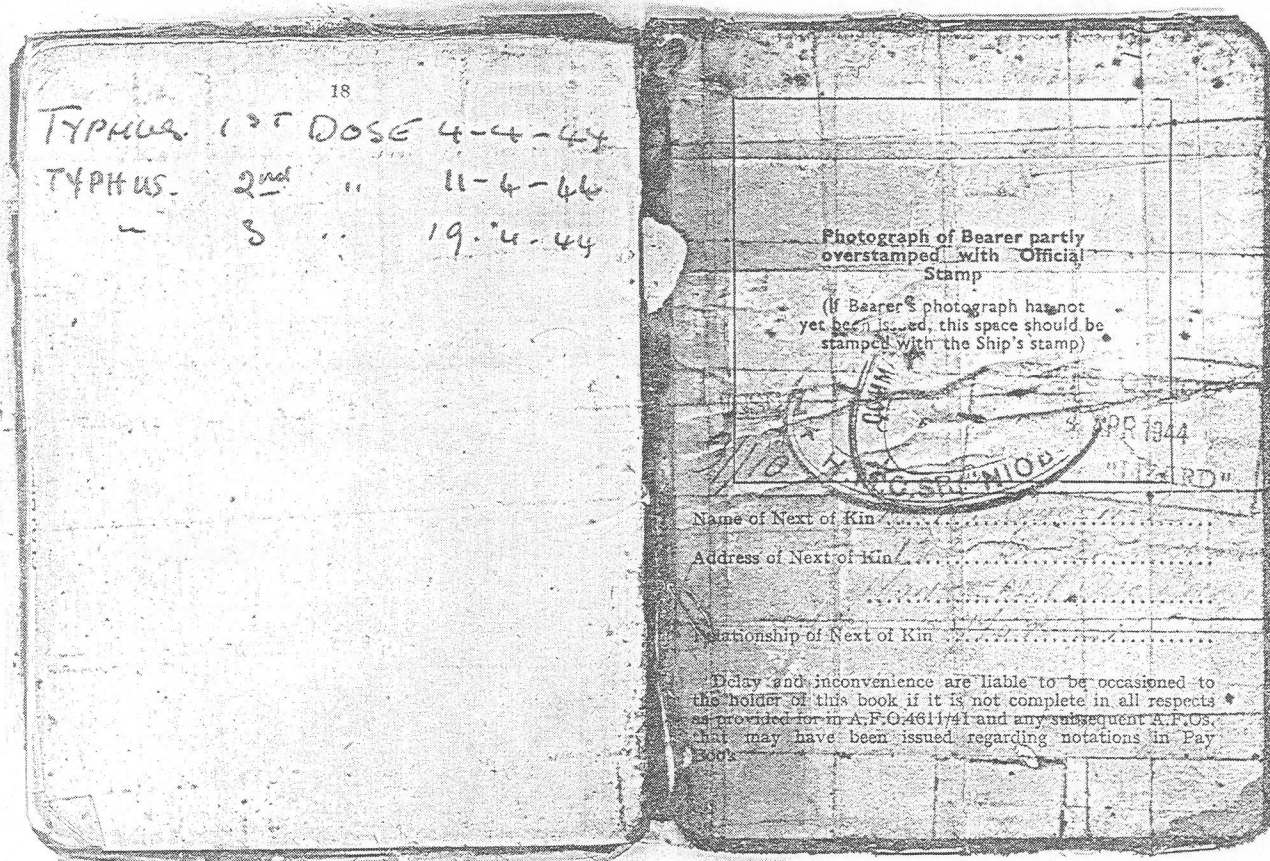 18
TYPHUS. 1ST DOSE 4-4-44
TYPHUS. 2nd " 11-4-44
" 3 " 19.4.44
Photograph of Bearer partly
overstamped with Official
Stamp
(If Bearer's photograph has not
yet been issued, this space should be
stamped with the Ship's stamp)
APR 1944
"LIZARD"
Name of Next of Kin
Address of Next of Kin
Relationship of Next of Kin
Delay and inconvenience are liable to be occasioned to
the holder of this book if it is not complete in all respects
as provided for in A.F.O.4611/41 and any subsequent A.F.Os.
that may have been issued regarding notations in Pay
Books